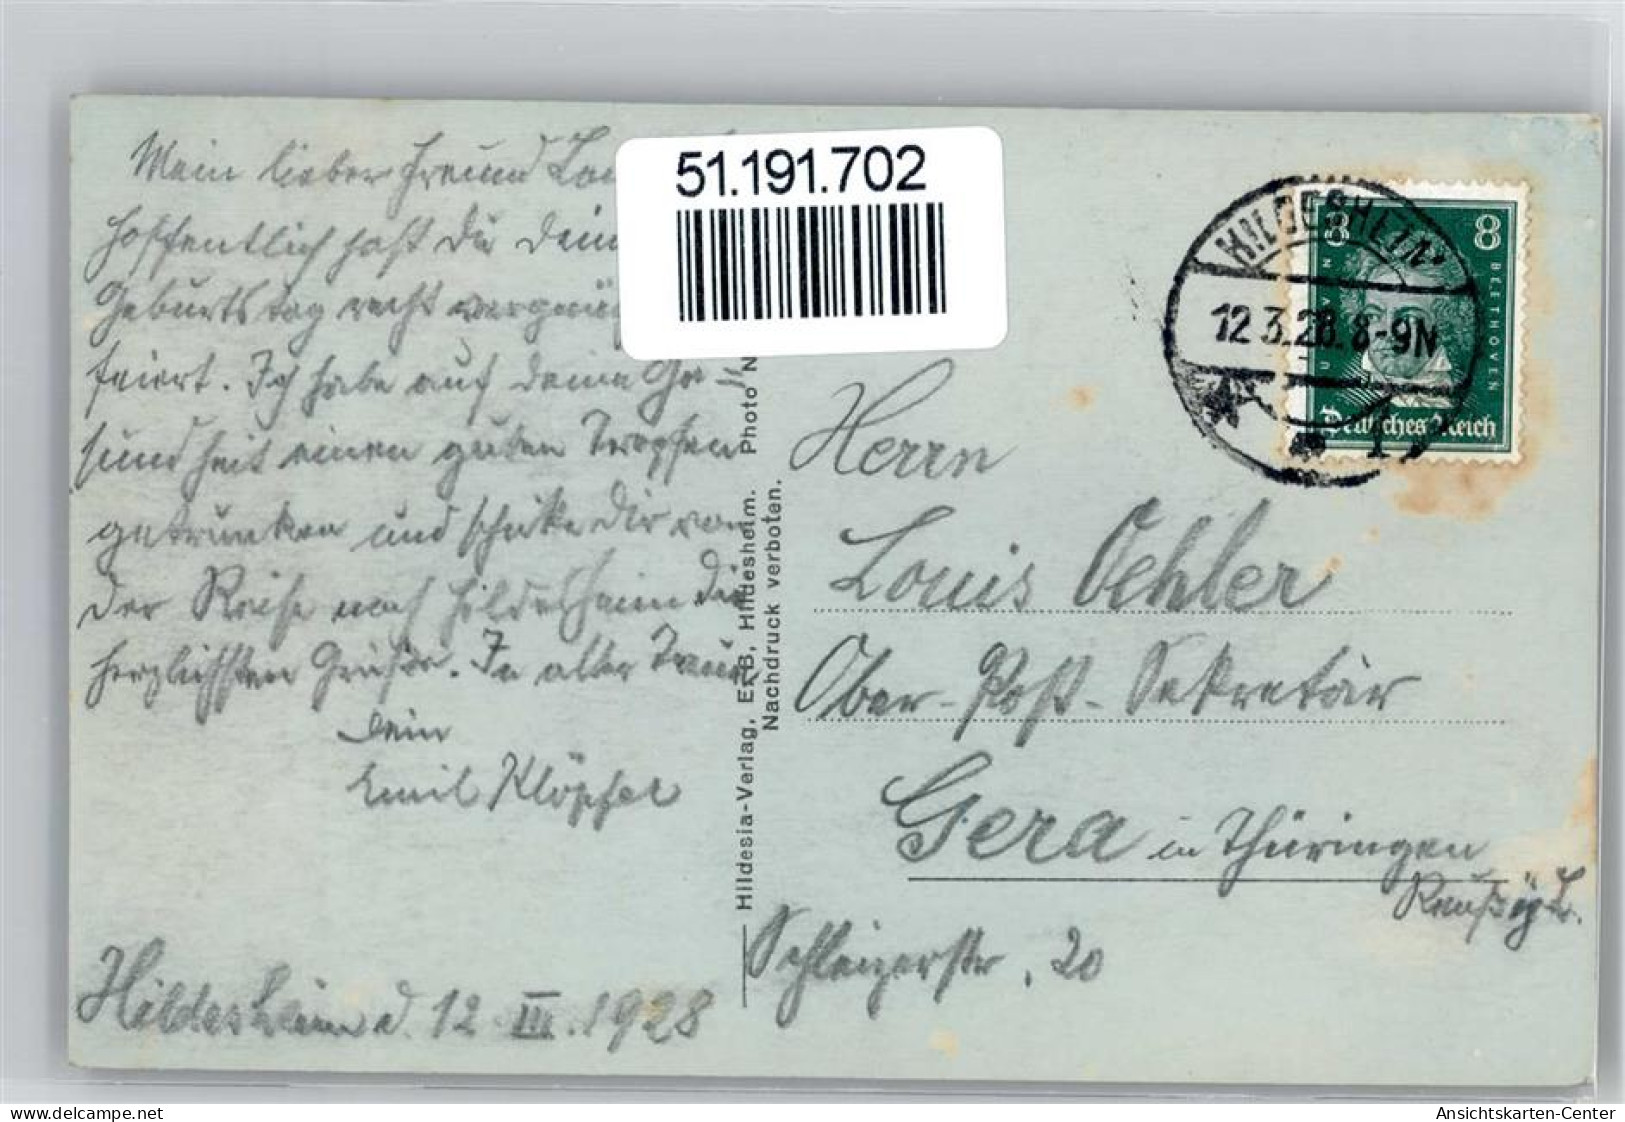 Mein lieber Freund
hoffentlich hast du dein
Geburtstag recht
feiert. Ich habe auf deine Ge=
sundheit einen guten Tropfen
getrunken und schicke Dir von
der Reise nach Hildesheim die
herzlichsten Grüße. In alter Treue
Dein
Emil Klöpfel
Hildesheim d. 12 III. 1928
51.191.702
Hildesia-Verlag, E. B, Hildesheim. Photo N
Nachdruck verboten.
HILDESHEIM
12.3.28. 8-9N
8 8
BEETHOVEN
Deutsches Reich
Herrn
Louis Oehler
Ober-Post-Sekretär
Gera in Thüringen
Reuß j. L.
Schleizerstr. 20
www.delcampe.net
Ansichtskarten-Center